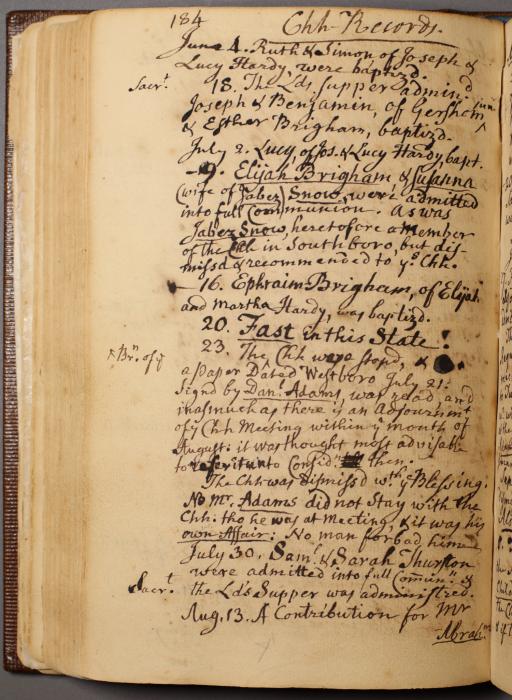 184 Chh Records.
June 4. Ruth & Simon of Joseph &
Lucy Hardy, were baptizd.
Sacrt. 18. The Lds supper admind.
Joseph & Benjamin, of Gershom jun
& Esther Brigham, baptizd.
July 2. Lucy of Jos. & Lucy Hardy bapt.
– 9. Elijah Brigham & Susanna
(wife of Jabez) Snow, were admitted
into full Communion. As was
Jabez Snow, heretofore a Member
of the Chh in Southboro, but dis-
missd & recommended to ys Chh.
– 16. Ephraim Brigham, of Elijah
and Martha Hardy, was baptizd.
20. Fast in this State.
23. The Chh were stopd, &
a paper Dated Westboro July 21.
Signd by Danl. Adams, was read, and
inasmuch as there is an adjournmt
of ye Chh Meeting within ye month of
August: it was thought most advisable
to refer it unto Considn then.
The Chh was dismissd wth ye Blessing.
^ Brn. of ye
No Mr. Adams did not stay with the
Chh: tho he was at Meeting, & it was his
own Affair: No man forbad him.
July 30. Saml. & Sarah Thurston
were admitted into full Comunn. &
Sacrt. the Ld's Supper was administred.
Aug. 13. A Contribution for Mr
Abrah